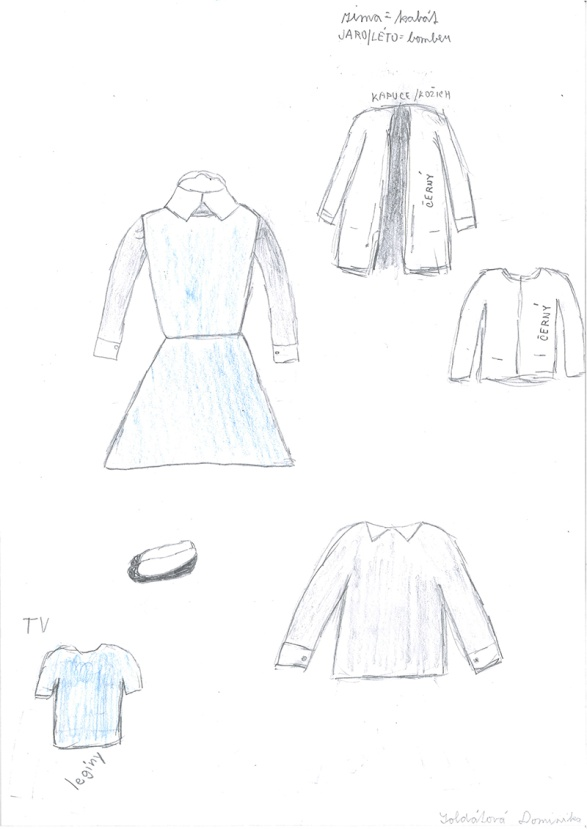 zima = kabát
JARO/LÉTO = bomber
KAPUCE/KOŽICH
ČERNÝ
ČERNÝ
TV
legíny
Dominika